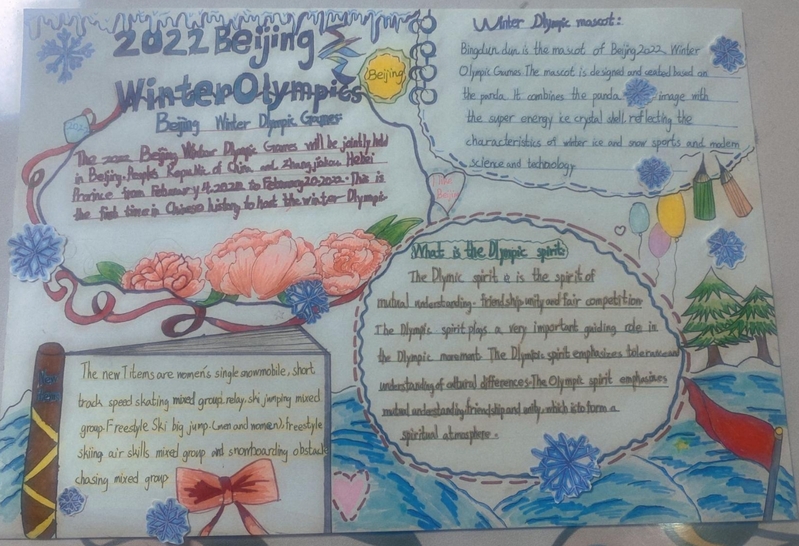 2022 Beijing
Winter Olympics
Beijing
Beijing Winter Olympic Games
The 2022 Beijing Winter Olympic Games will be jointly held
in Beijing, People's Republic of China and Zhangjiakou Hebei
Province from February 4.2022 to February 20.2022. This is
the first time in Chinese history to host the winter Olympic
Winter Olympic mascot:
Bingdun dun is the mascot of Beijing 2022 Winter
Olympic Games The mascot is designed and created based on
the panda. It combines the panda image with
the super energy ice crystal shell, reflecting the
characteristics of winter ice and snow sports and modern
science and technology
What is the Olympic spirit
The Olymic spirit is the spirit of
mutual understanding. friendship unity and fair competition
The Olympic spirit plays a very important guiding role in
the Olympic movement The Olympic spirit emphasizes tolerance and
understanding of cultural differences. The Olympic spirit emphasizes
mutual understanding, friendship and unity, which is to form a
spiritual atmosphere.
The new 7 items are women's single snowmobile, short
track speed skating mixed group relay, ski jumping mixed
group. Freestyle Ski big jump (men and women), freestyle
skiing air skills mixed group and snowboarding obstacle
chasing mixed group